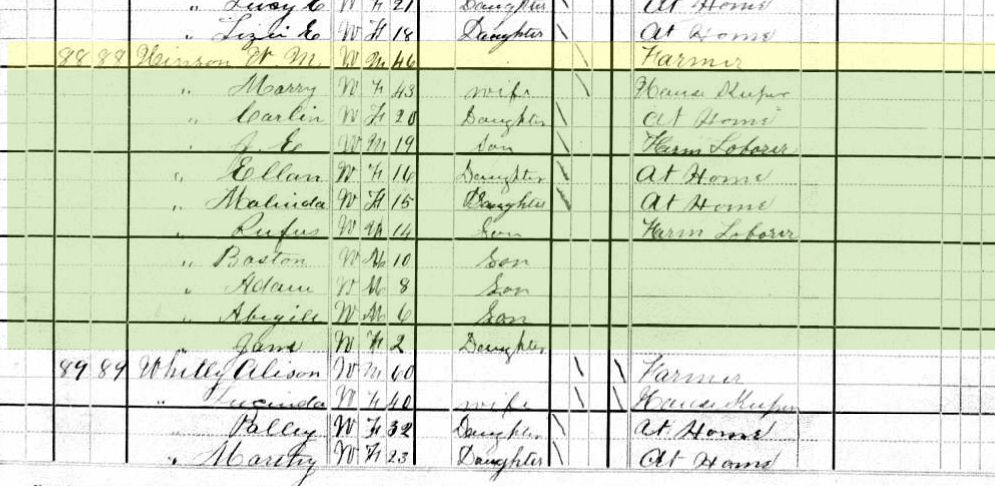 " Lucy C W F 21 Daughter \ At Home
" Lizzie E W F 18 Daughter \ At Home
88 88 Hinson W M 46 \ Farmer
" Marry W F 43 wife \ House Keeper
" Carlin W F 20 Daughter \ At Home
" W M 19 Son \ Farm Loborer
" Ellan W F 16 Daughter \ At Home
" Malinda W F 15 Daughter \ At Home
" Rufus W M 14 Son Farm Loborer
" Baston W M 10 Son
" Adam W M 8 Son
" Abigill W M 6 Son
" Jane W F 2 Daughter
89 89 Whitly Alison W M 60 \ \ Farmer
" Lucinda W F 40 wife \ \ House Keeper
" Polley W F 32 Daughter \ At Home
" Marthy W F 23 Daughter \ At Home